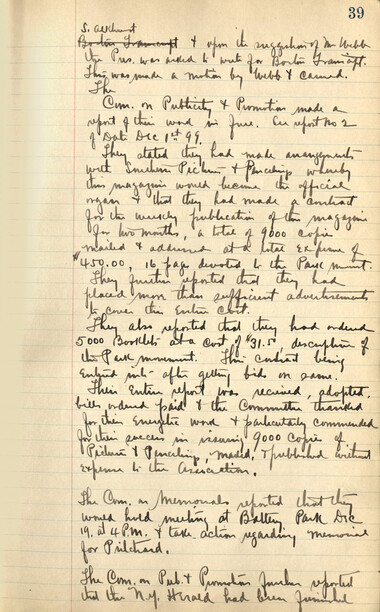 39
S. asking
Boston Transcript & upon the suggestion of Mr Webb
the Pres. was asked to write for Boston Transcript.
This was made a motion by Webb & carried.
The
Com. on Publicity & Promotion made a
report of their work in full. See report No 2
of Date Dec 1st 99.
They stated they had made arrangements
with Smiths Pictures & Pencilings whereby
this magazine would become the official
organ & that they had made a contract
for the weekly publication of this magazine
for two months, a total of 9000 copies
mailed & addressed at a total expense of
$450.00, 16 page devoted to the Park movmt.
They further reported that they had
placed more than sufficient advertisements
to cover this Entire Cost.
They also reported that they had ordered
5000 Booklets at a cost of $31.50, descriptive of
the Park movement. This contract being
Entered into after getting bids on same.
Their Entire report was received, adopted,
bills ordered paid & the Committee thanked
for their Energetic work & particularly commended
for their success in issuing 9000 Copies of
Pictures & Pencilings, mailed, & published without
expense to the Association.
The Com. on Memorials reported that they
would hold meeting at Battery Park Dec
19. at 4 P.M. & take action regarding memorial
for Pritchard.
The Com. on Pub. & Promotion further reported
that the N.Y. Herald had been furnished